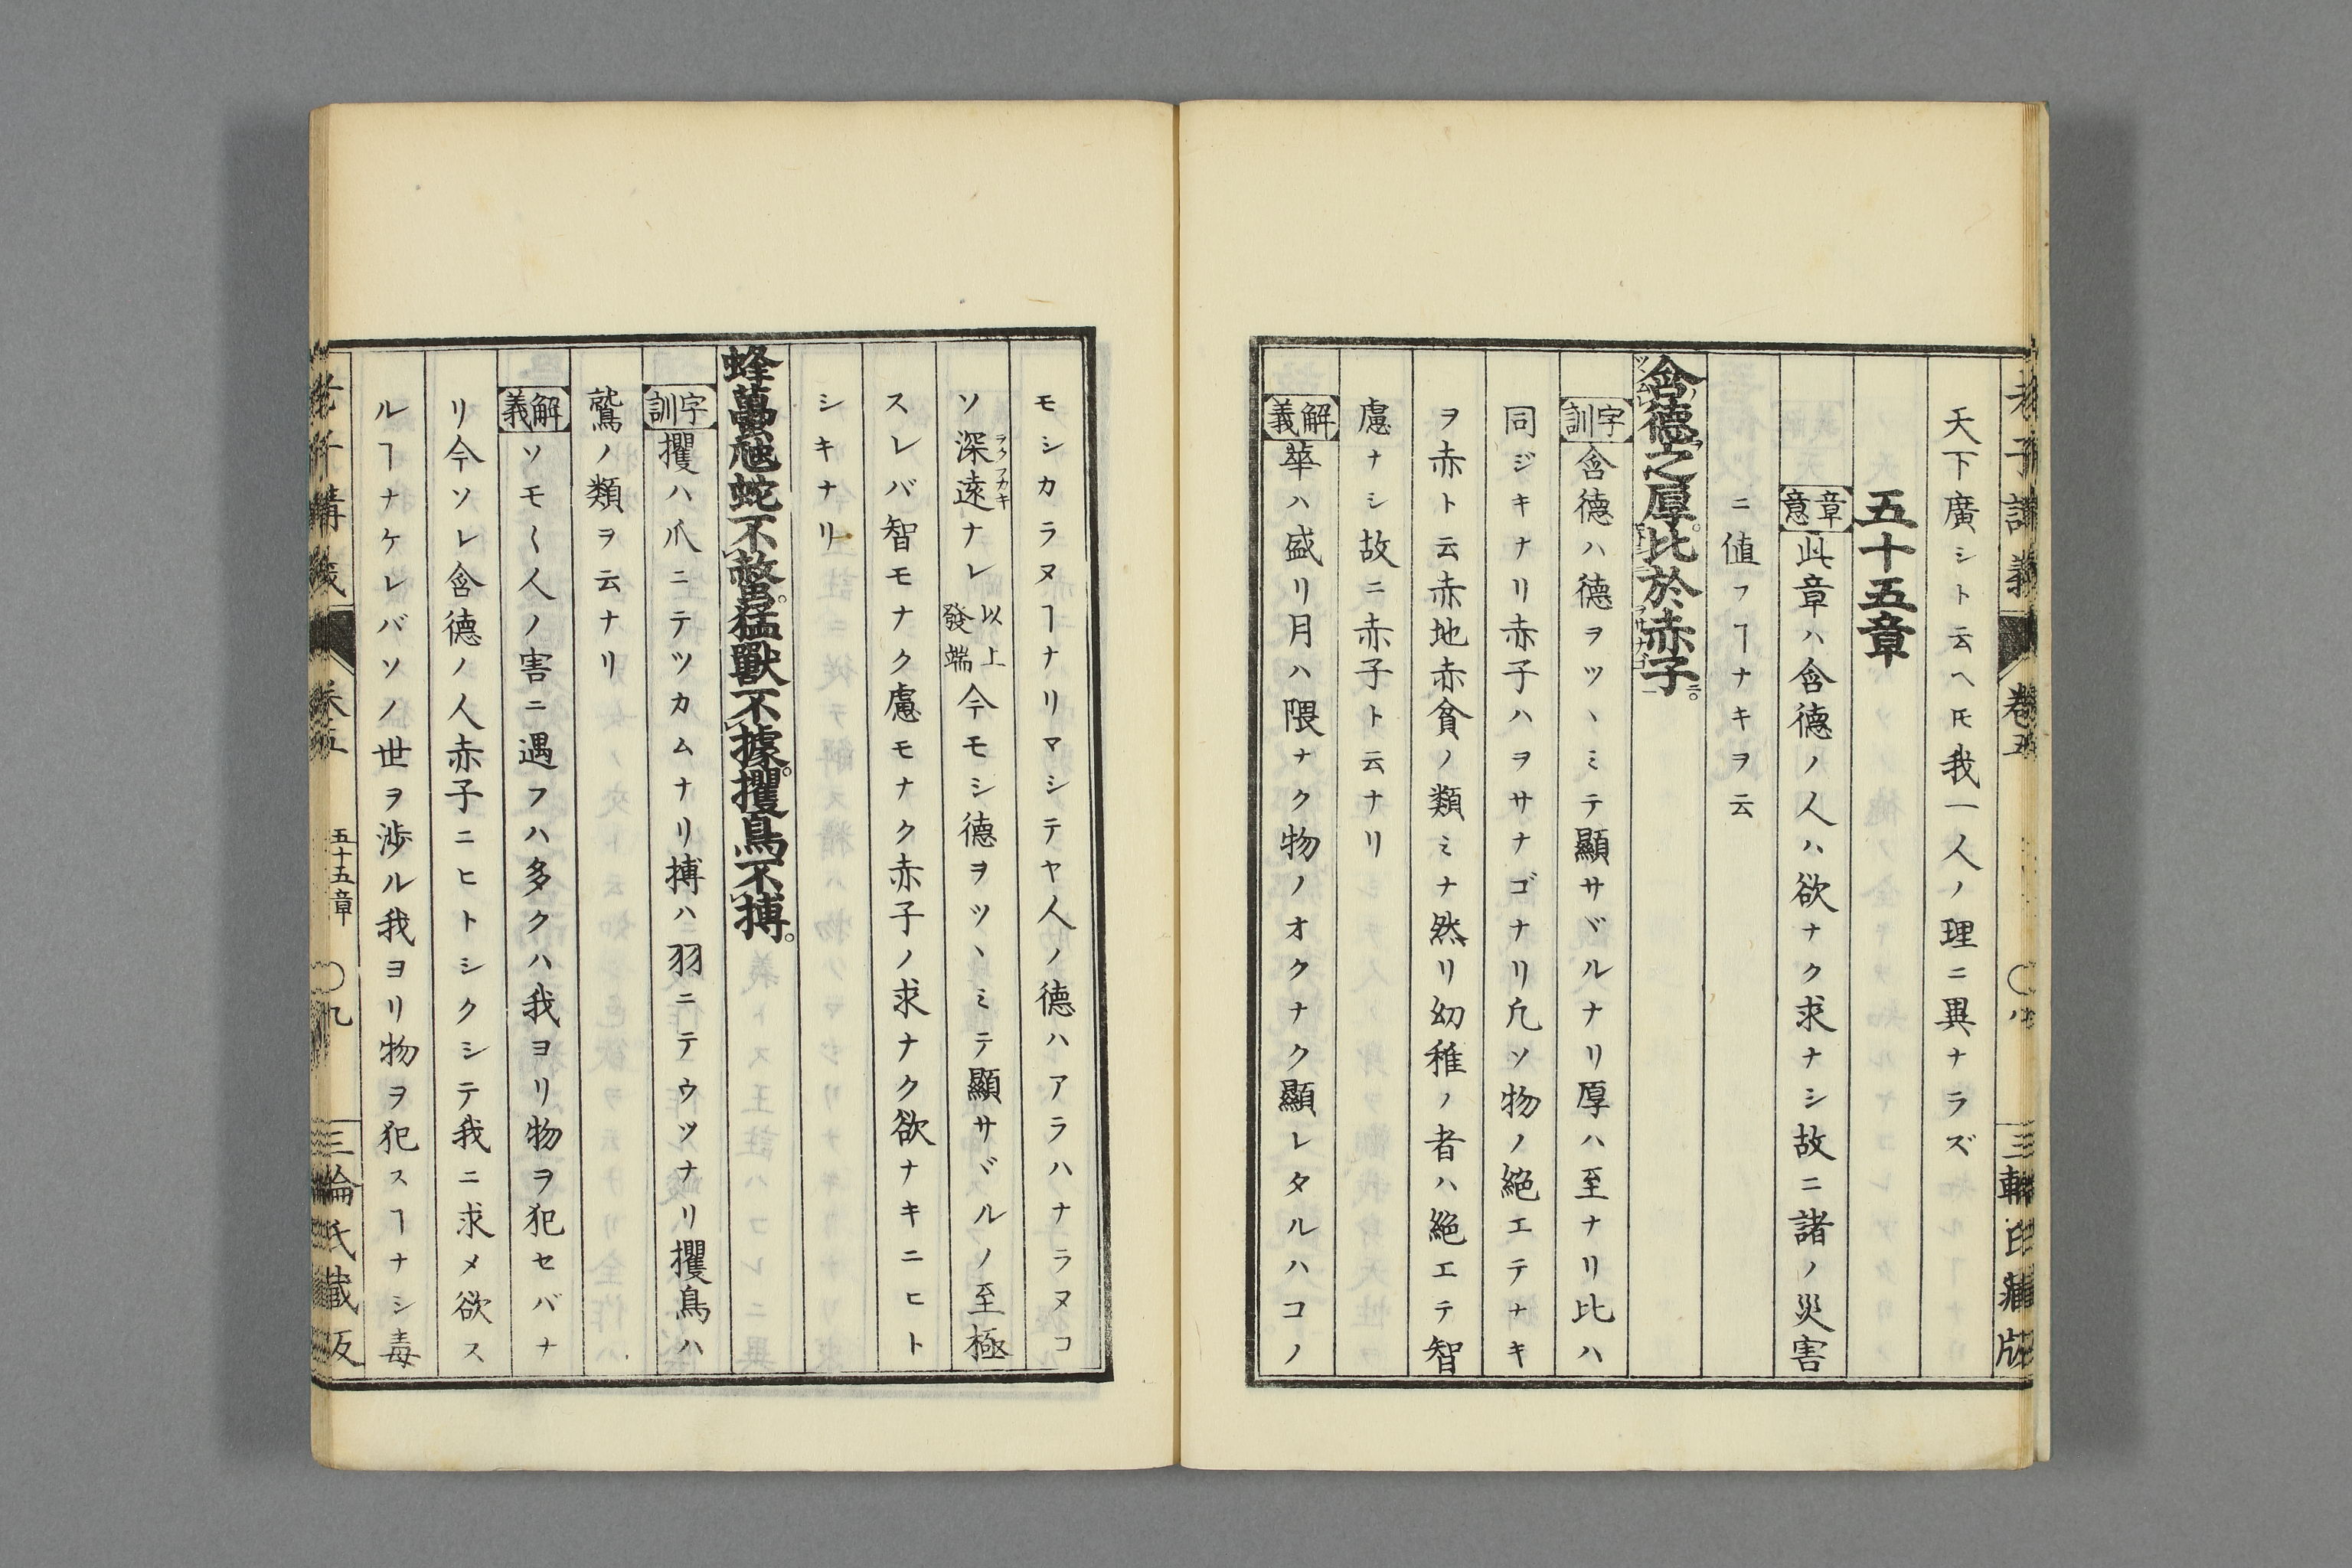 老子講義 卷五 〇八 三輪氏藏版
天下廣シト云ヘ𪜈我一人ノ理ニ異ナラズ
五十五章
章意 此章ハ含德ノ人ハ欲ナク求ナシ故ニ諸ノ災害
ニ値フヿナキヲ云
含德之厚。比於赤子。
字訓 含德ハ德ヲツヽミテ顯サヾルナリ厚ハ至ナリ比ハ
同ジキナリ赤子ハヲサナゴナリ凡ソ物ノ絕エテナキ
ヲ赤ト云赤地赤貧ノ類ミナ然リ幼稚ノ者ハ絕エテ智
慮ナシ故ニ赤子ト云ナリ
解義 華ハ盛リ月ハ隈ナク物ノオクナク顯レタルハコノ
モシカラヌヿナリマシテヤ人ノ德ハアラハナラヌコ
ソ深遠ナレ以上發端今モシ德ヲツヽミテ顯サヾルノ至極
スレバ智モナク慮モナク赤子ノ求ナク欲ナキニヒト
シキナリ
蜂蠆虺蛇不螫。猛獸不據。攫鳥不搏。
字訓 攫ハ爪ニテツカムナリ搏ハ羽ニテウツナリ攫鳥ハ
鷲ノ類ヲ云ナリ
解義 ソモ〱人ノ害ニ遇フハ多クハ我ヨリ物ヲ犯セバナ
リ今ソレ含德ノ人赤子ニヒトシクシテ我ニ求メ欲ス
ルヿナケレバソノ世ヲ渉ル我ヨリ物ヲ犯スヿナシ毒
老子講義 卷五 五十五章 〇九 三輪氏藏版